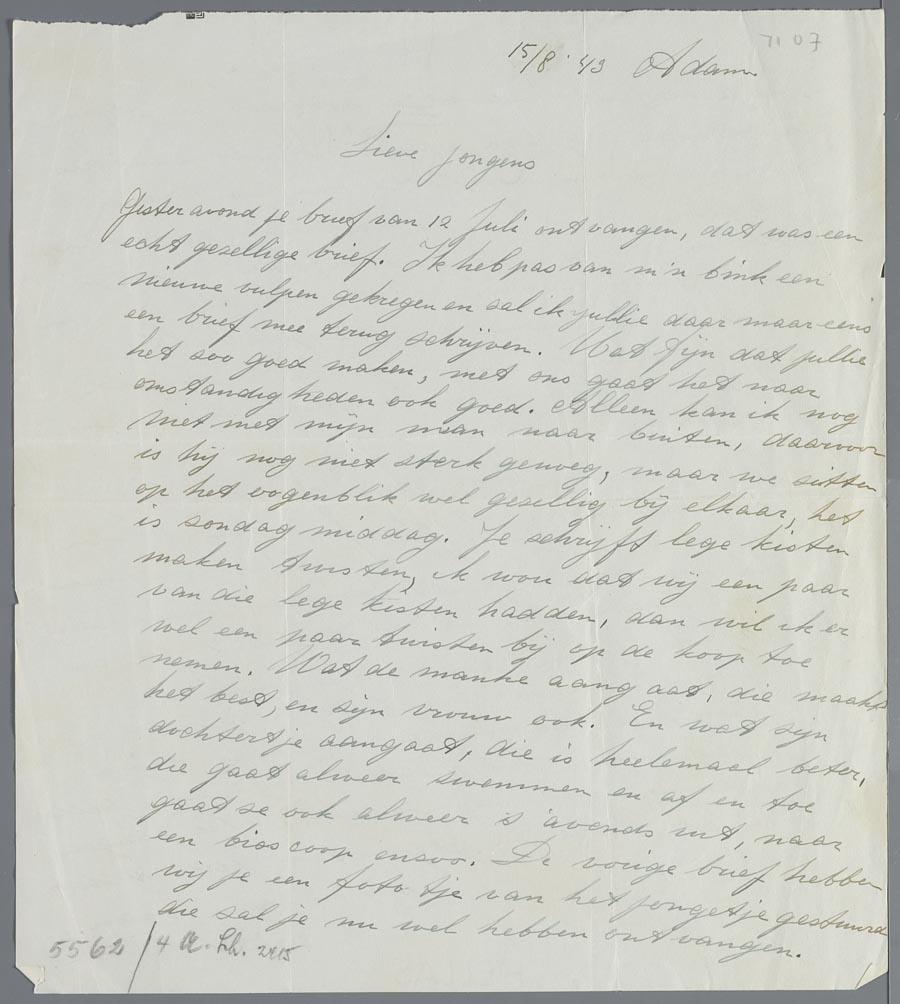 71 07
15/8 '43 Adam
Lieve jongens
Gister avond je brief van 12 Juli ontvangen, dat was een
echt gezellige brief. Ik heb pas van m'n bink een
nieuwe vulpen gekregen en sal ik jullie daar maar eens
een brief mee terug schrijven. Wat fijn dat jullie
het soo goed maken, met ons gaat het naar
omstandigheden ook goed. Alleen kan ik nog
niet met mijn man naar buiten, daarvoor
is hij nog niet sterk genoeg, maar we sitten
op het oogenblik wel gesellig bij elkaar, het
is sondag middag. Je schrijft lege kisten
maken twisten, ik wou dat wij een paar
van die lege kisten hadden, dan wil ik er
wel een paar twisten bij op de koop toe
nemen. Wat de manke aangaat, die maakt
het best, en sijn vrouw ook. En wat sijn
dochtertje aangaat, die is heelemaal beter,
die gaat alweer swemmen en af en toe
gaat se ook alweer 's avonds uit, naar
een bioscoop ensoo. De vorige brief hebben
wij je een fototje van het jongetje gestuurd
die sal je nu wel hebben ontvangen.
5562 / 4 Lh. 2415